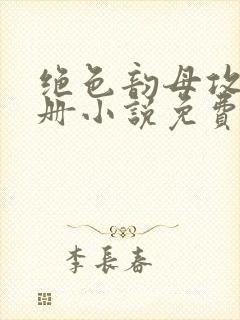 绝色韵母攻
册小说免费
李长春